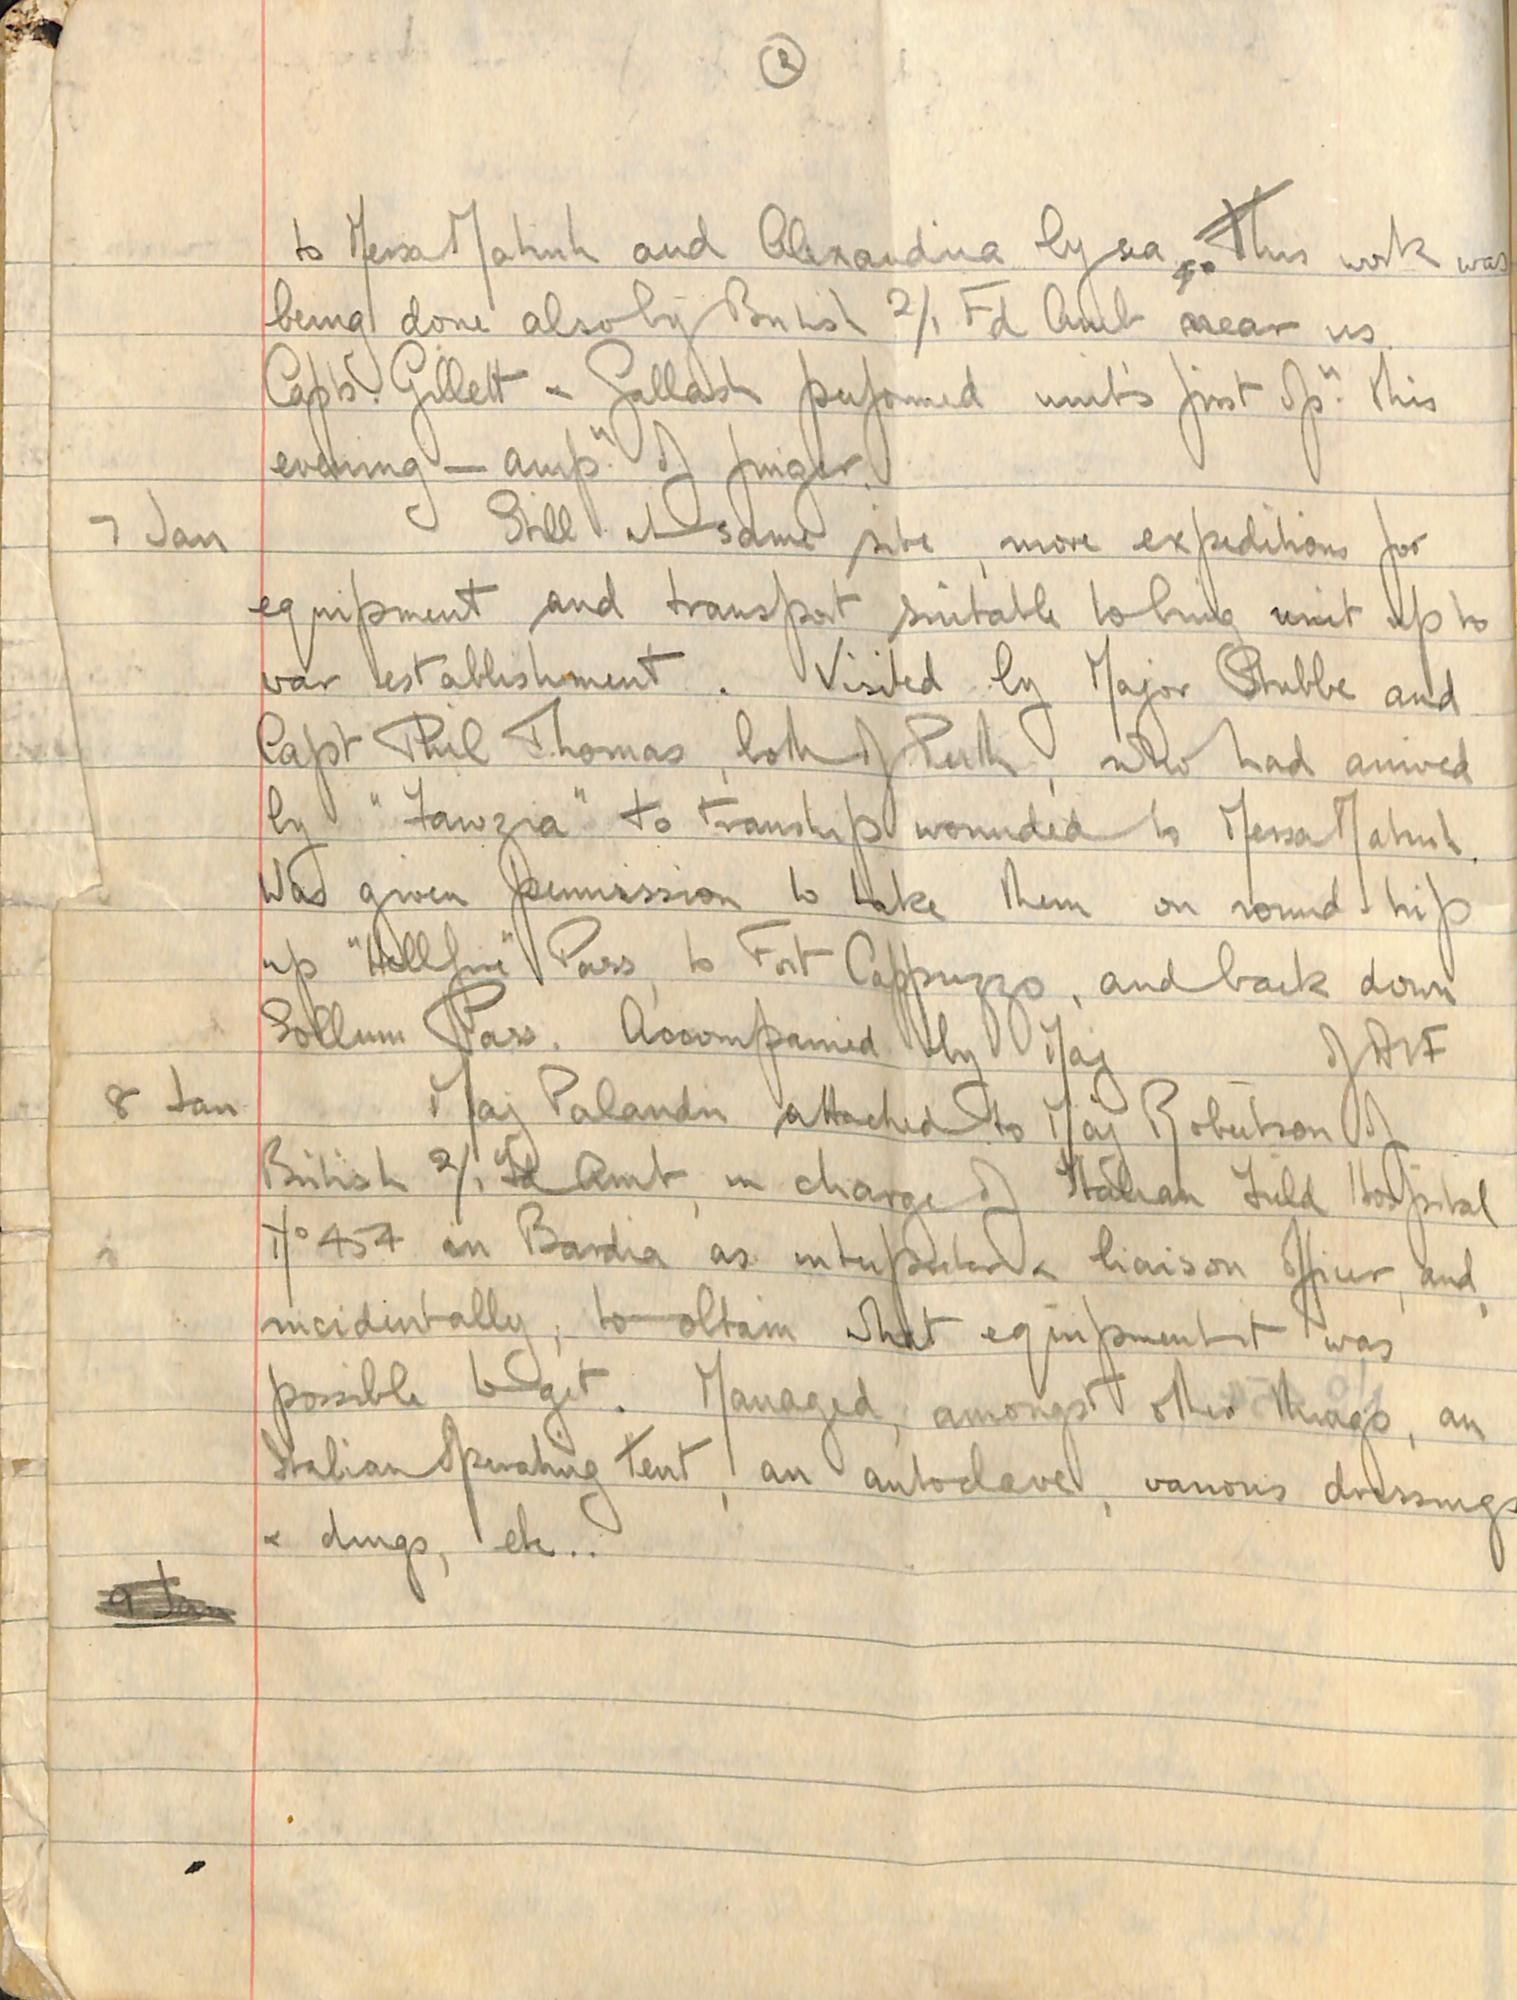 2
to Mersa Matruh and Alexandria by sea. This work was
being done also by British 2/1 Fd Amb near us.
Capts. Gillett & Gallash performed unit's first Opn. this
evening — ampn of finger.
7 Jan Still at same site, more expeditions for
equipment and transport suitable to bring unit up to
war establishment. Visited by Major Stubbe and
Capt Phil Thomas, both of Perth, who had arrived
by "Fawzia" to tranship wounded to Mersa Matruh.
Was given permission to take them on round trip
up "Hellfire" Pass, to Fort Cappuzzo, and back down
Sollum Pass. Accompanied by Maj of AIF
8 Jan Maj Palandri attached to Maj Robertson of
British 2/1 Fd Amb, in charge of Italian Field Hospital
No 454 in Bardia as interpreter & liaison officer, and,
incidentally, to obtain what equipment it was
possible to get. Managed, amongst other things, an
Italian Operating Tent, an autoclave, various dressings
& drugs, etc..
9 Jan